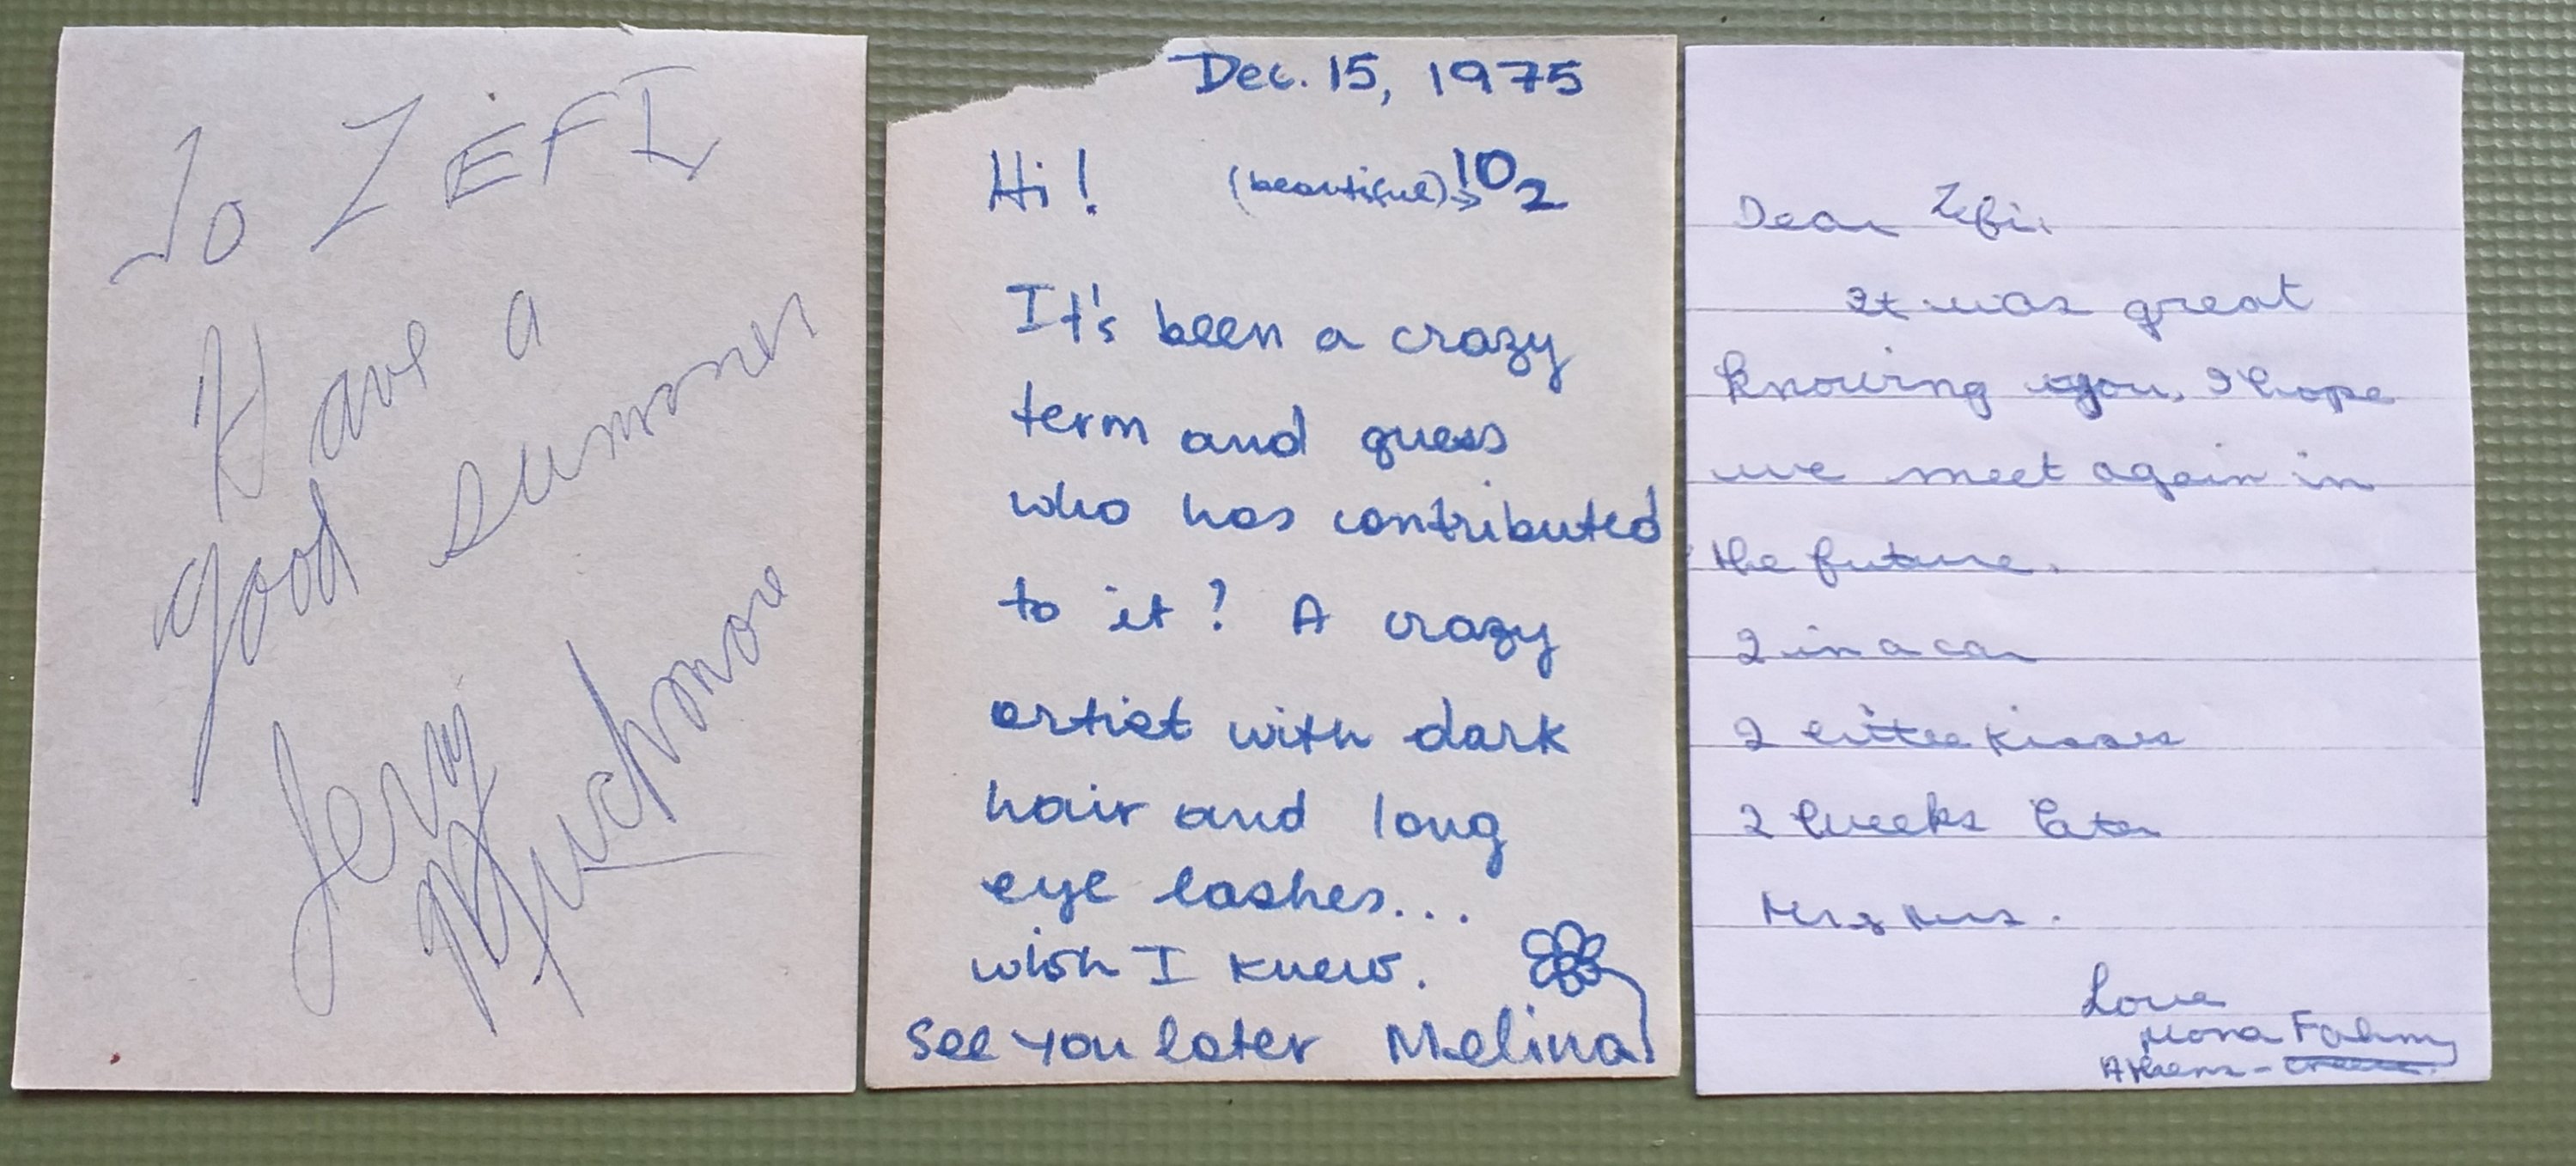 To ZEFI
Have a
good summer
Jerry
Muchmore
Dec. 15, 1975
Hi! (beautiful)→ 10₂
It's been a crazy
term and guess
who has contributed
to it? A crazy
artist with dark
hair and long
eye lashes...
wish I knew.
See you later Melina
Dear Zefi.
It was great
knowing you. I hope
we meet again in
the future.
2 in a car
2 little kisses
2 weeks later
Mr & Mrs.
Love
Mona Fahmy
Athens -